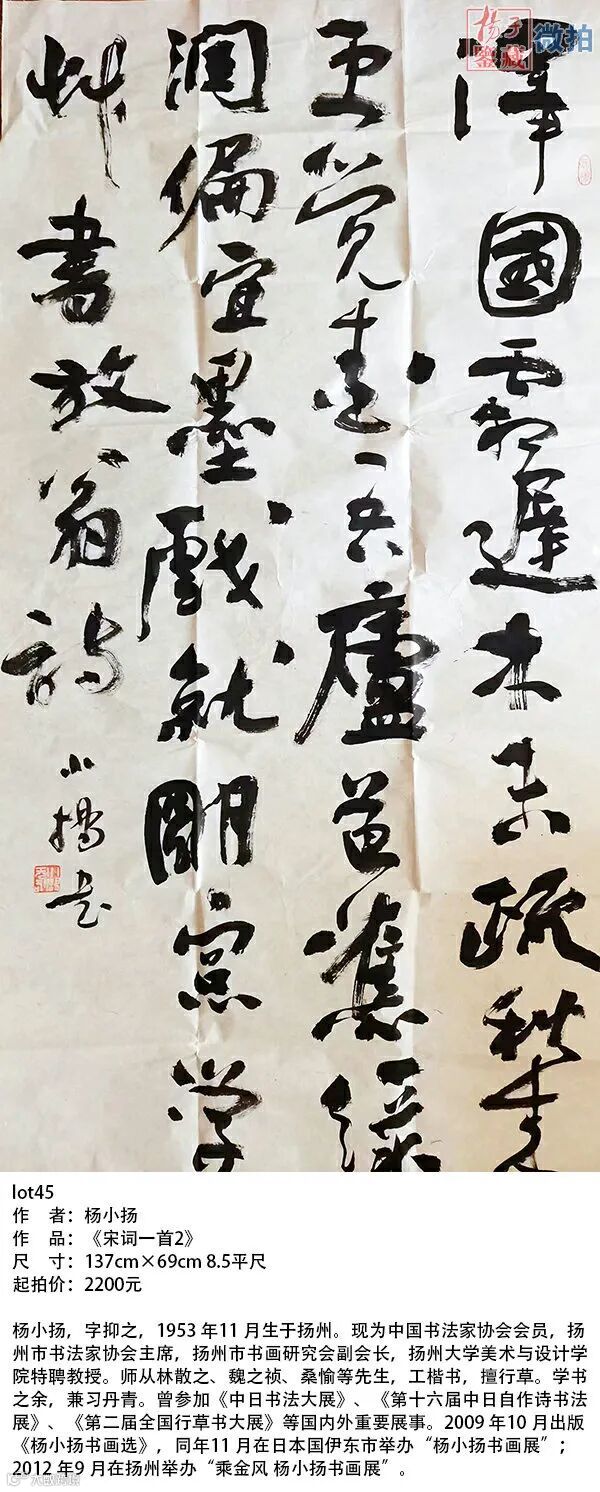 揚子
鑒藏
微拍
澤國霜遲木未疏秋來
更覺愛吾廬芭蕉綠
潤偏宜墨戲就朙窓學
艸書放翁詩
小揚書
lot45
作 者：杨小扬
作 品：《宋词一首2》
尺 寸：137cm×69cm 8.5平尺
起拍价：2200元
杨小扬，字抑之，1953 年11 月生于扬州。现为中国书法家协会会员，扬
州市书法家协会主席，扬州市书画研究会副会长，扬州大学美术与设计学
院特聘教授。师从林散之、魏之祯、桑愉等先生，工楷书，擅行草。学书
之余，兼习丹青。曾参加《中日书法大展》、《第十六届中日自作诗书法
展》、《第二届全国行草书大展》等国内外重要展事。2009 年10 月出版
《杨小扬书画选》，同年11 月在日本国伊东市举办“杨小扬书画展”；
2012 年9 月在扬州举办“乘金风 杨小扬书画展”。